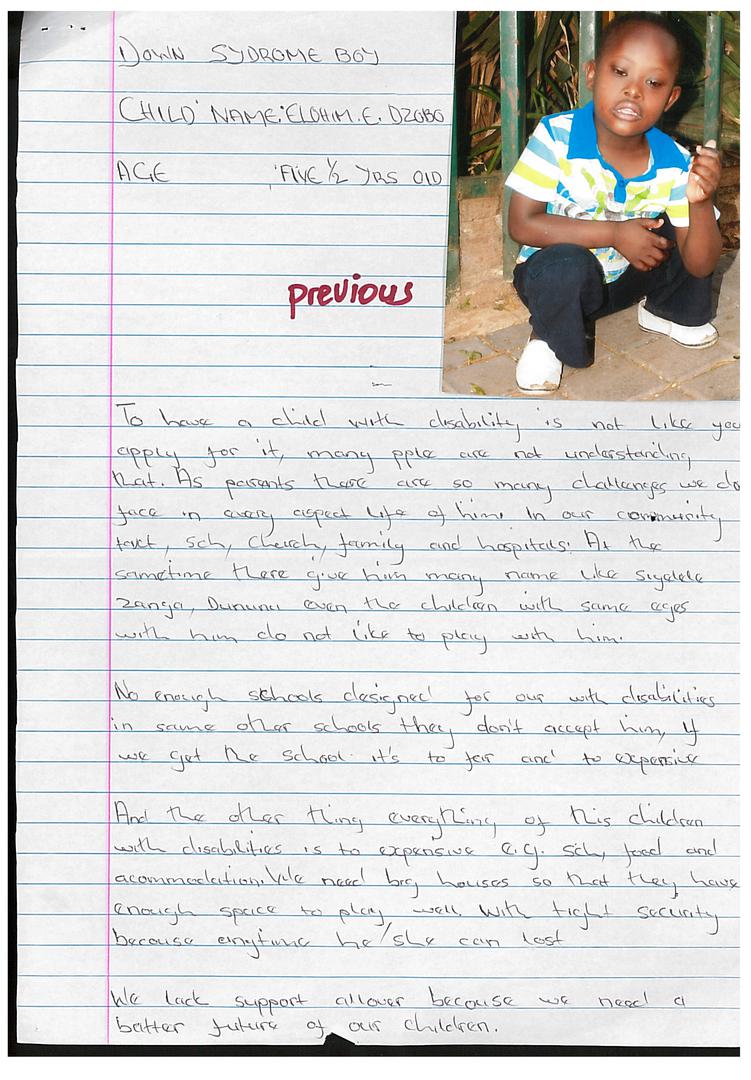 DOWN SYDROME BOY
CHILD' NAME: ELOHIM. E. DZOBO
AGE : FIVE 1/2 YRS OlD
previous
To have a child with disability is not like you
apply for it, many pple are not understanding
that. As parents there are so many challenges we do
face in every aspect life of him. In our community
, sch, church, family and hospitals. At the
sametime there give him many name like sigelele
zanga, Dununu even the children with same ages
with him do not like to play with him.
No enough schools designed for our with disabilities
in same other schools they don't accept him, If
we get the school it's to far and to expensive
And the other thing everything of this children
with disabilities is to expensive e.g. sch, food and
acommodation. We need big houses so that they have
enough space to play well. With tight security
because anytime he/she can lost
We lack support allover because we need a
better future of our children.